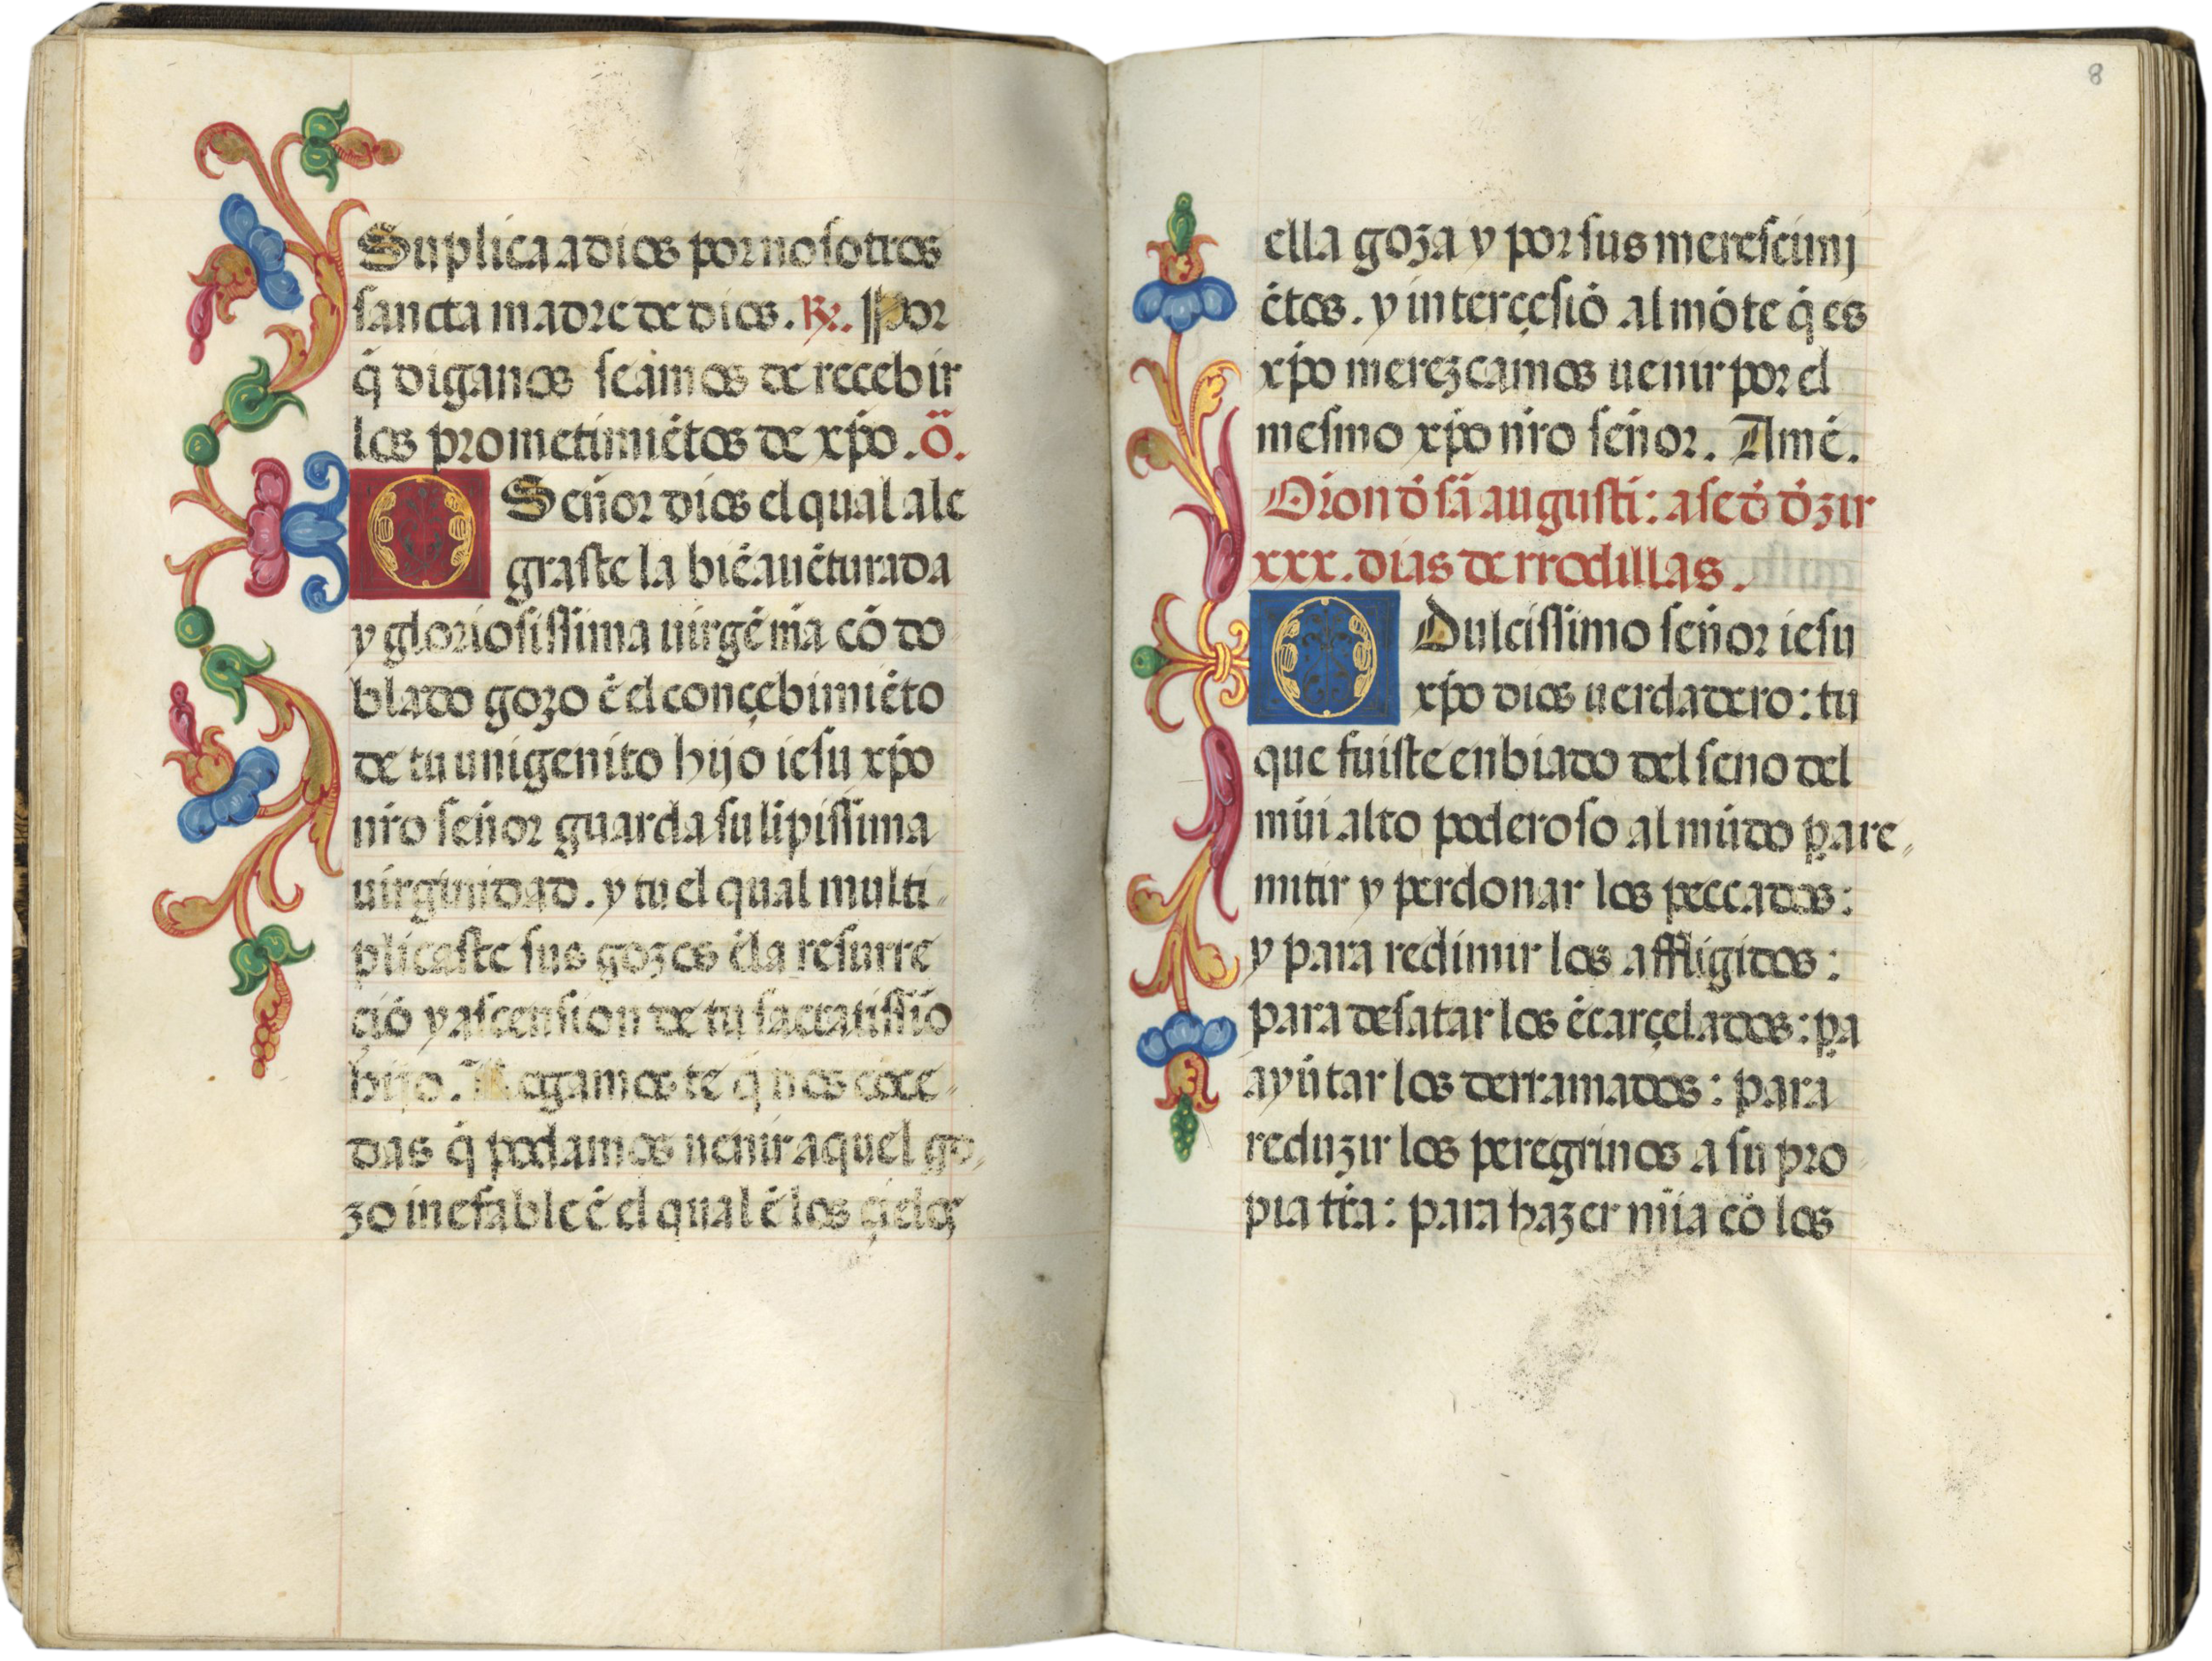 Suplica a dios por nosotros
sancta madre de dios. R̃. Por
q̃ diganos seamos de recebir
los prometimiẽtos de xp̃o. õ.
O Señor dios el qual ale
graste la biẽauẽturada
y gloriosissima uirgẽ mã cõ do
blado gozo ẽ el conçebimiẽto
de tu unigenito hijo iesu xp̃o
nr̃o señor guarda su lĩpissima
uirginidad. y tu el qual multi
plicaste sus gozos ẽla resurre
çiõ y ascension de tu sacratissiõ
hijo. Rogamos te q̃ nos cõce
das q̃ podamos uenir aquel go
zo inefable ẽ el qual ẽ los çielos
8
ella goza y por sus meresçimj
ẽtos. y interçesiõ al mõte q̃ es
xp̃o merezcamos uenir por el
mesmo xp̃o nr̃o señor. Amẽ.
Oiõn d̃ sã augusti: a se d̃ d̃zir
xxx. dias de rrodillas.
O Dulcissimo señor iesu
xp̃o dios uerdadero: tu
que fuiste enbiado del seno del
mũi alto poderoso al mũdo p̱a re
mitir y perdonar los peccados:
y para redimir los affligidos:
para desatar los ẽcarçelados: p̱a
ayũtar los derramados: para
reduzir los peregrinos a su pro
pia tr̃a: para hazer mĩa cõ los